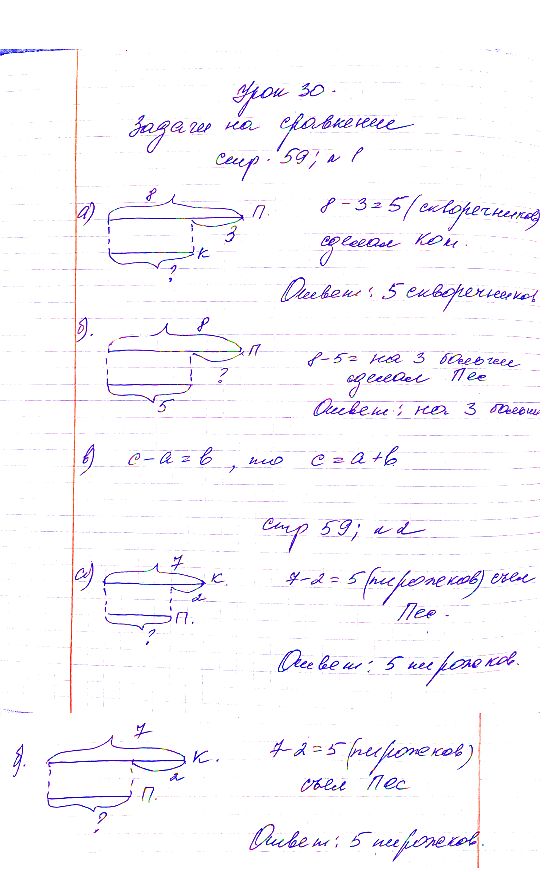 Урок 30.
Задачи на сравнение
стр. 59; №1
а) 8 П. 8 - 3 = 5 (скворечников)
3
К
? сделал Кот.
Ответ: 5 скворечников
б). 8 П
? 8-5 = на 3 больше
сделал Пёс
5 Ответ: на 3 больше
в) с-а=в, то с=а+в
стр 59; №2
а) 7 К. 7-2 = 5 (пирожков) съел
2
П. Пёс.
?
Ответ: 5 пирожков.
б). 7 К. 7-2=5 (пирожков)
2
П. съел Пёс
?
Ответ: 5 пирожков.